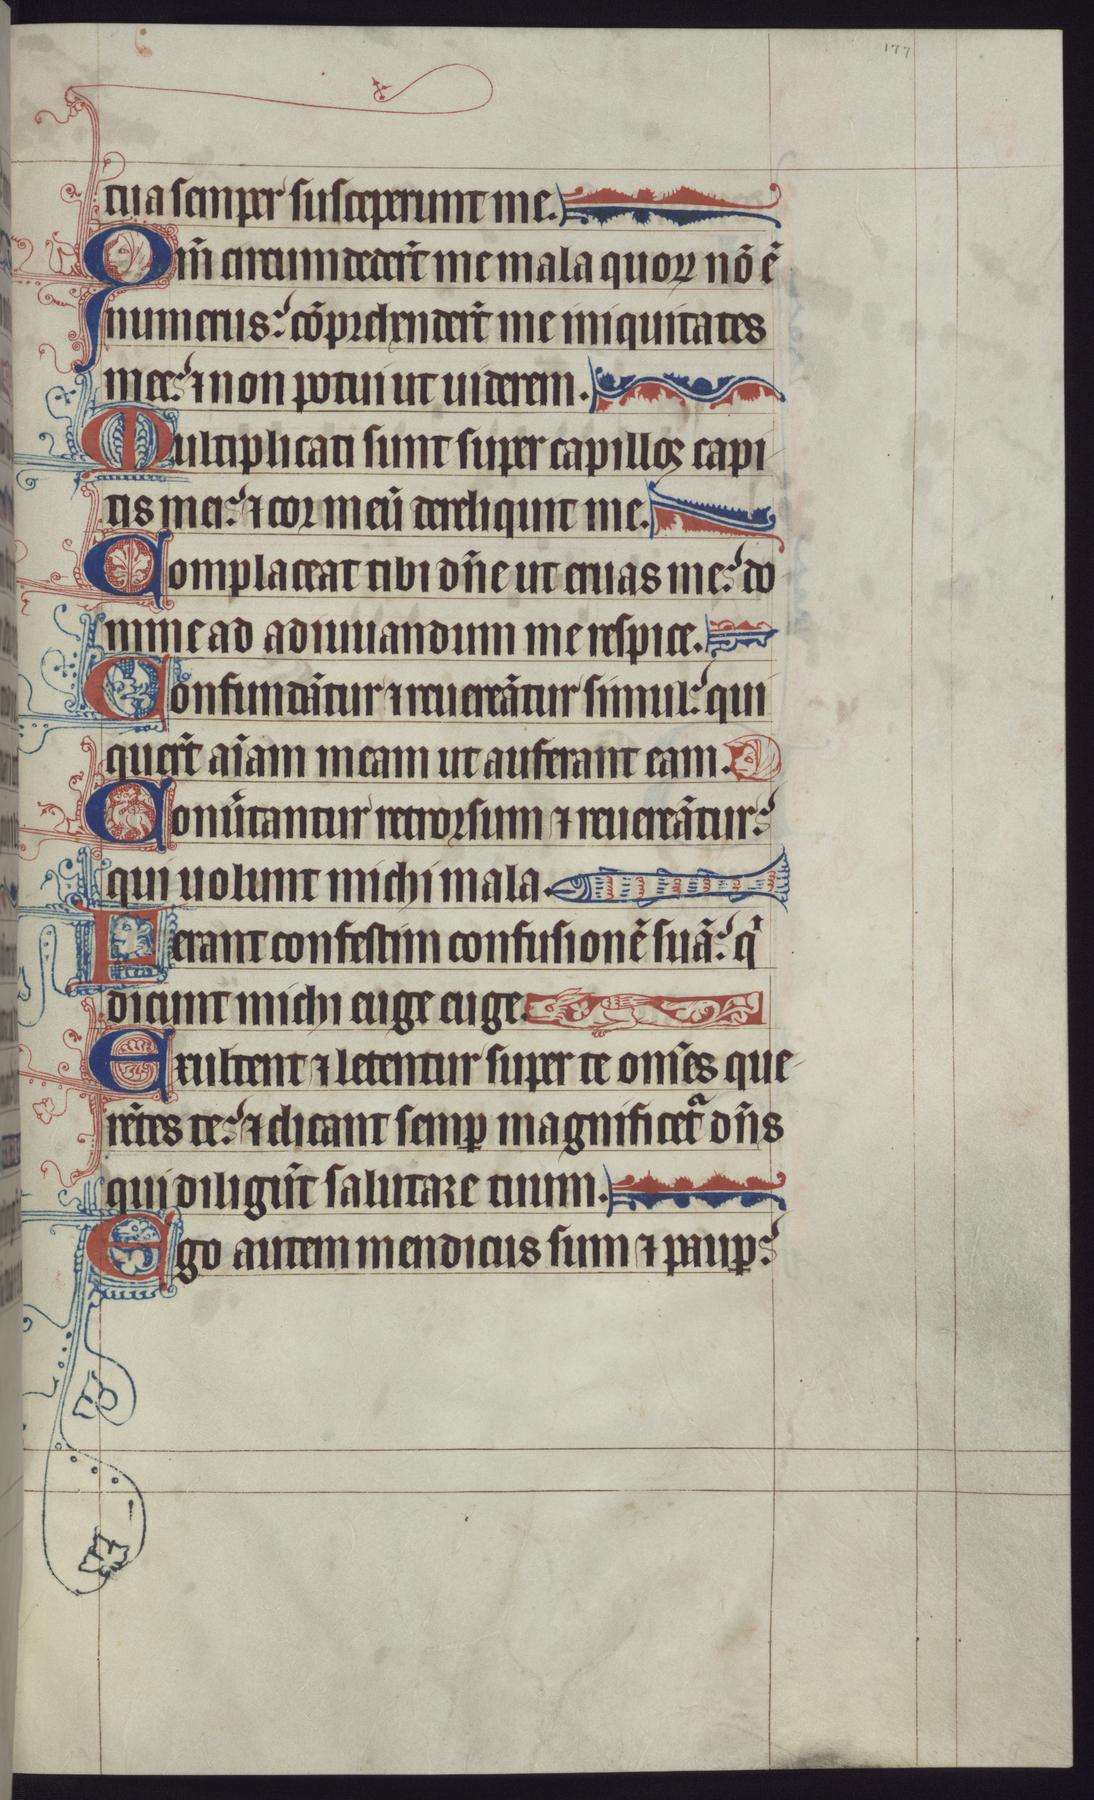 177
tua semper susceperunt me.
Qm̄ circumdeder̄t me mala quoꝝ nō ē
numerus: cōprehender̄t me iniquitates
mee: ⁊ non potui ut uiderem.
Multiplicati sunt super capillos capi
tis mei: ⁊ cor meū dereliquit me.
Complaceat tibi dn̄e ut eruas me: do
mine ad adiuuandum me respice.
Confundātur ⁊ reuereātur simul: qui
quer̄t aīam meam ut auferant eam.
Conūtantur retrorsum ⁊ reuereātur:
qui uolunt michi mala.
Ferant confestim confusionē suā: qⁱ
dicunt michi euge euge.
Exultent ⁊ letentur super te om̄es que
rētes te: ⁊ dicant semꝑ magnificetᵃ dn̄s
qui diligūt salutare tuum.
Ego autem mendicus sum ⁊ pauꝑ: